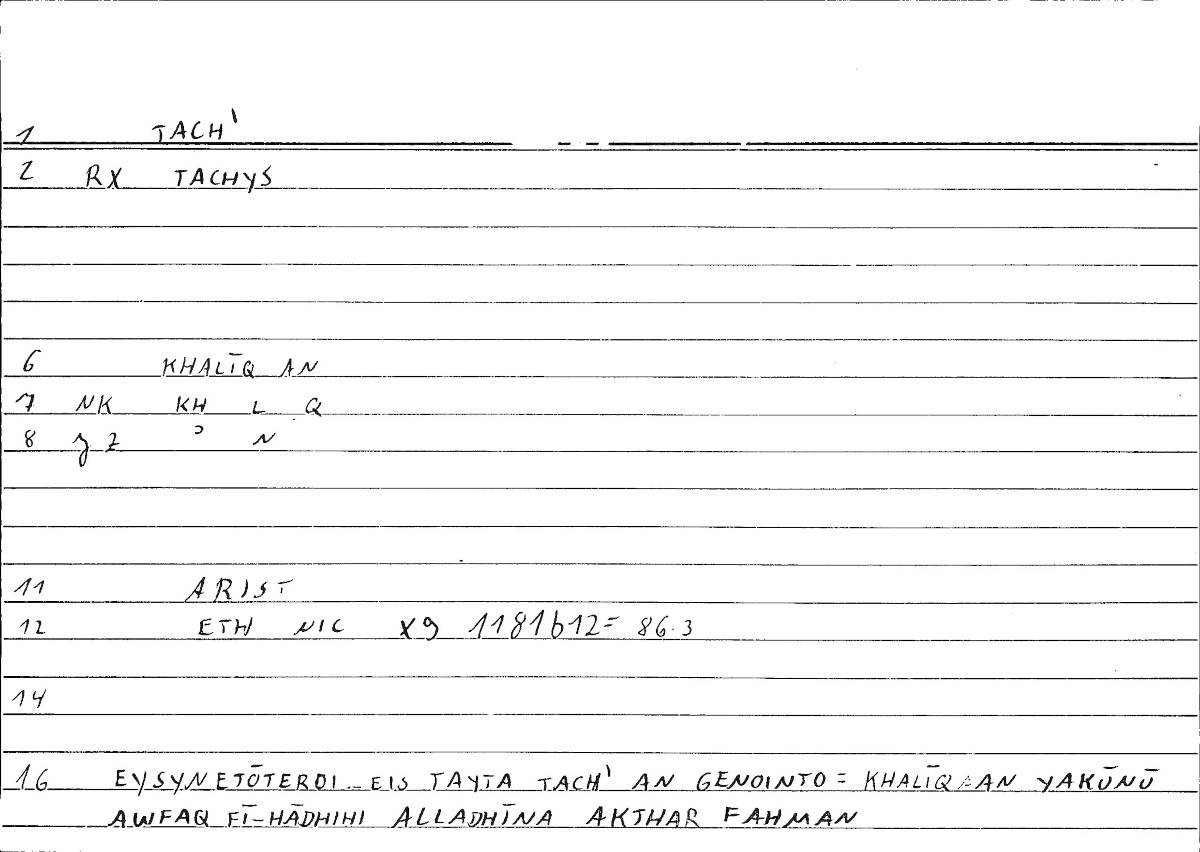 1 TACH'
2 RX TACHYS
6 KHALĪQ AN
7 NK KH L Q
8 YZ ' N
11 ARIST
12 ETH NIC X9 1181b12= 86.3
14
16 EYSYNETŌTEROI EIS TAYTA TACH' AN GENOINTO = KHALĪQ AN YAKŪNŪ
AWFAQ FĪ-HĀDHIHI ALLADHĪNA AKTHAR FAHMAN